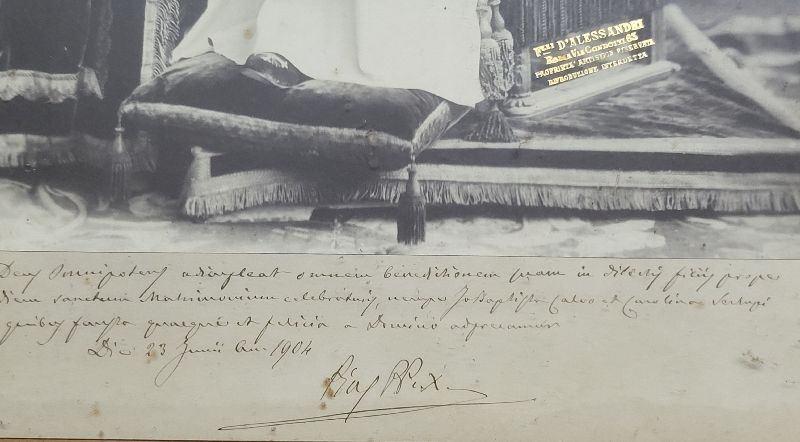 Flli D'ALESSANDRI
ROMA VIA CONDOTTI 63
PROPRIETA' ARTISTICA RISERVATA
RIPRODUZIONE INTERDETTA
Deus Omnipotens adimpleat omnem benedictionem suam in dilectis filiis prope
diem sanctum Matrimonium celebraturis, nempe Jo Baptista Calvo et Carolina
quibus fausta quaeque et felicia a Domino adprecamur
Die 23 Junii An. 1904
Pius PP. X.